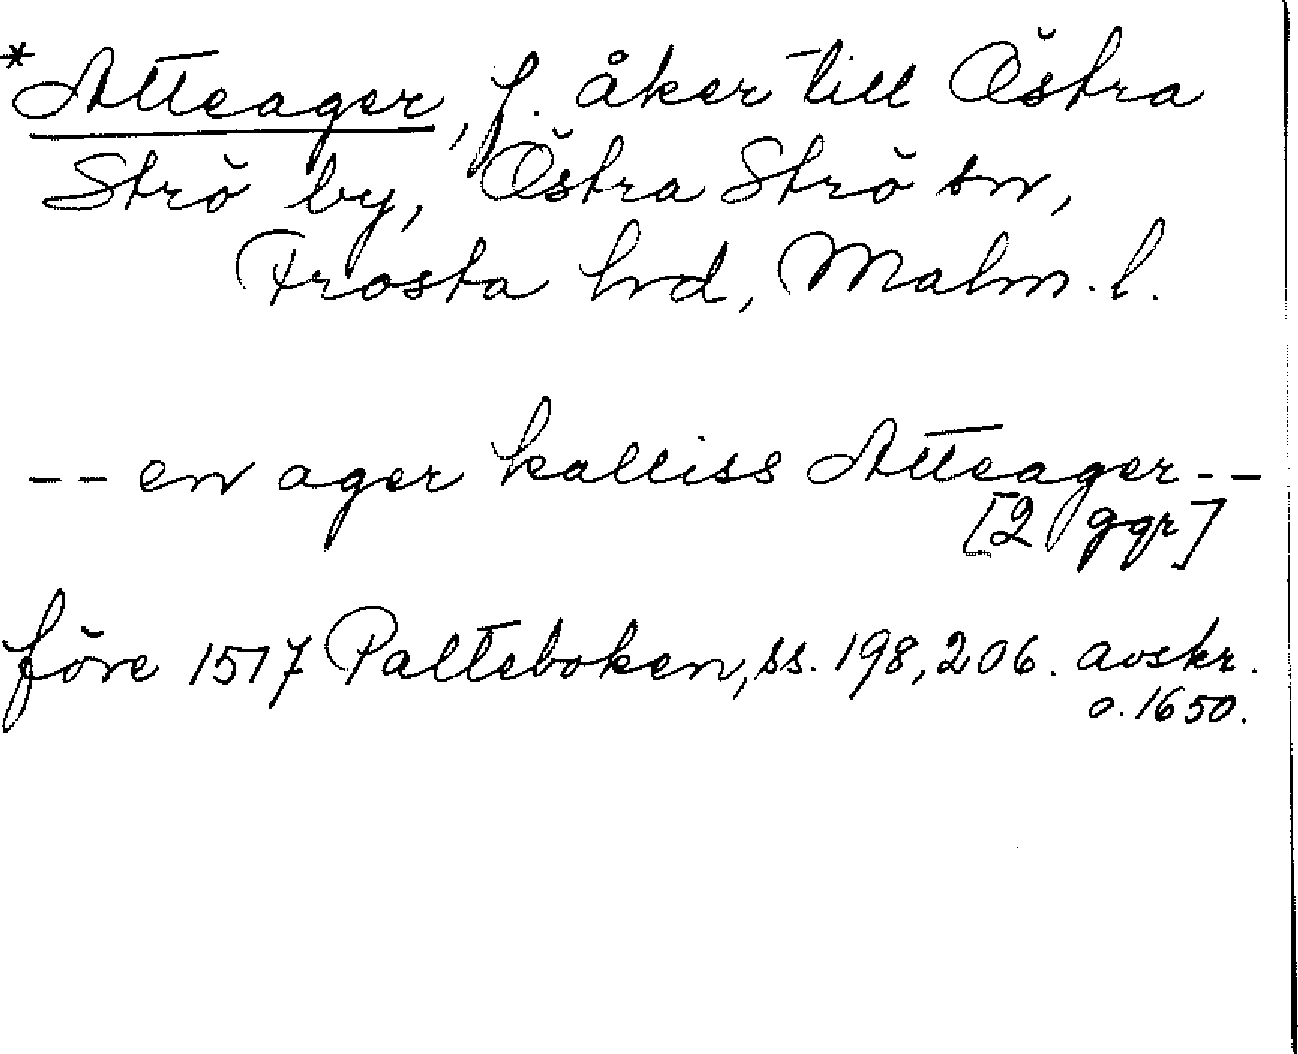 *Atteager, f. åker till Östra
Strö by, Östra Strö sn,
Frosta hd, Malm. l.
-- en ager kalliss Atteager --
[2 ggr]
före 1517 Palteboken, ss. 198, 206. avskr.
o. 1650.